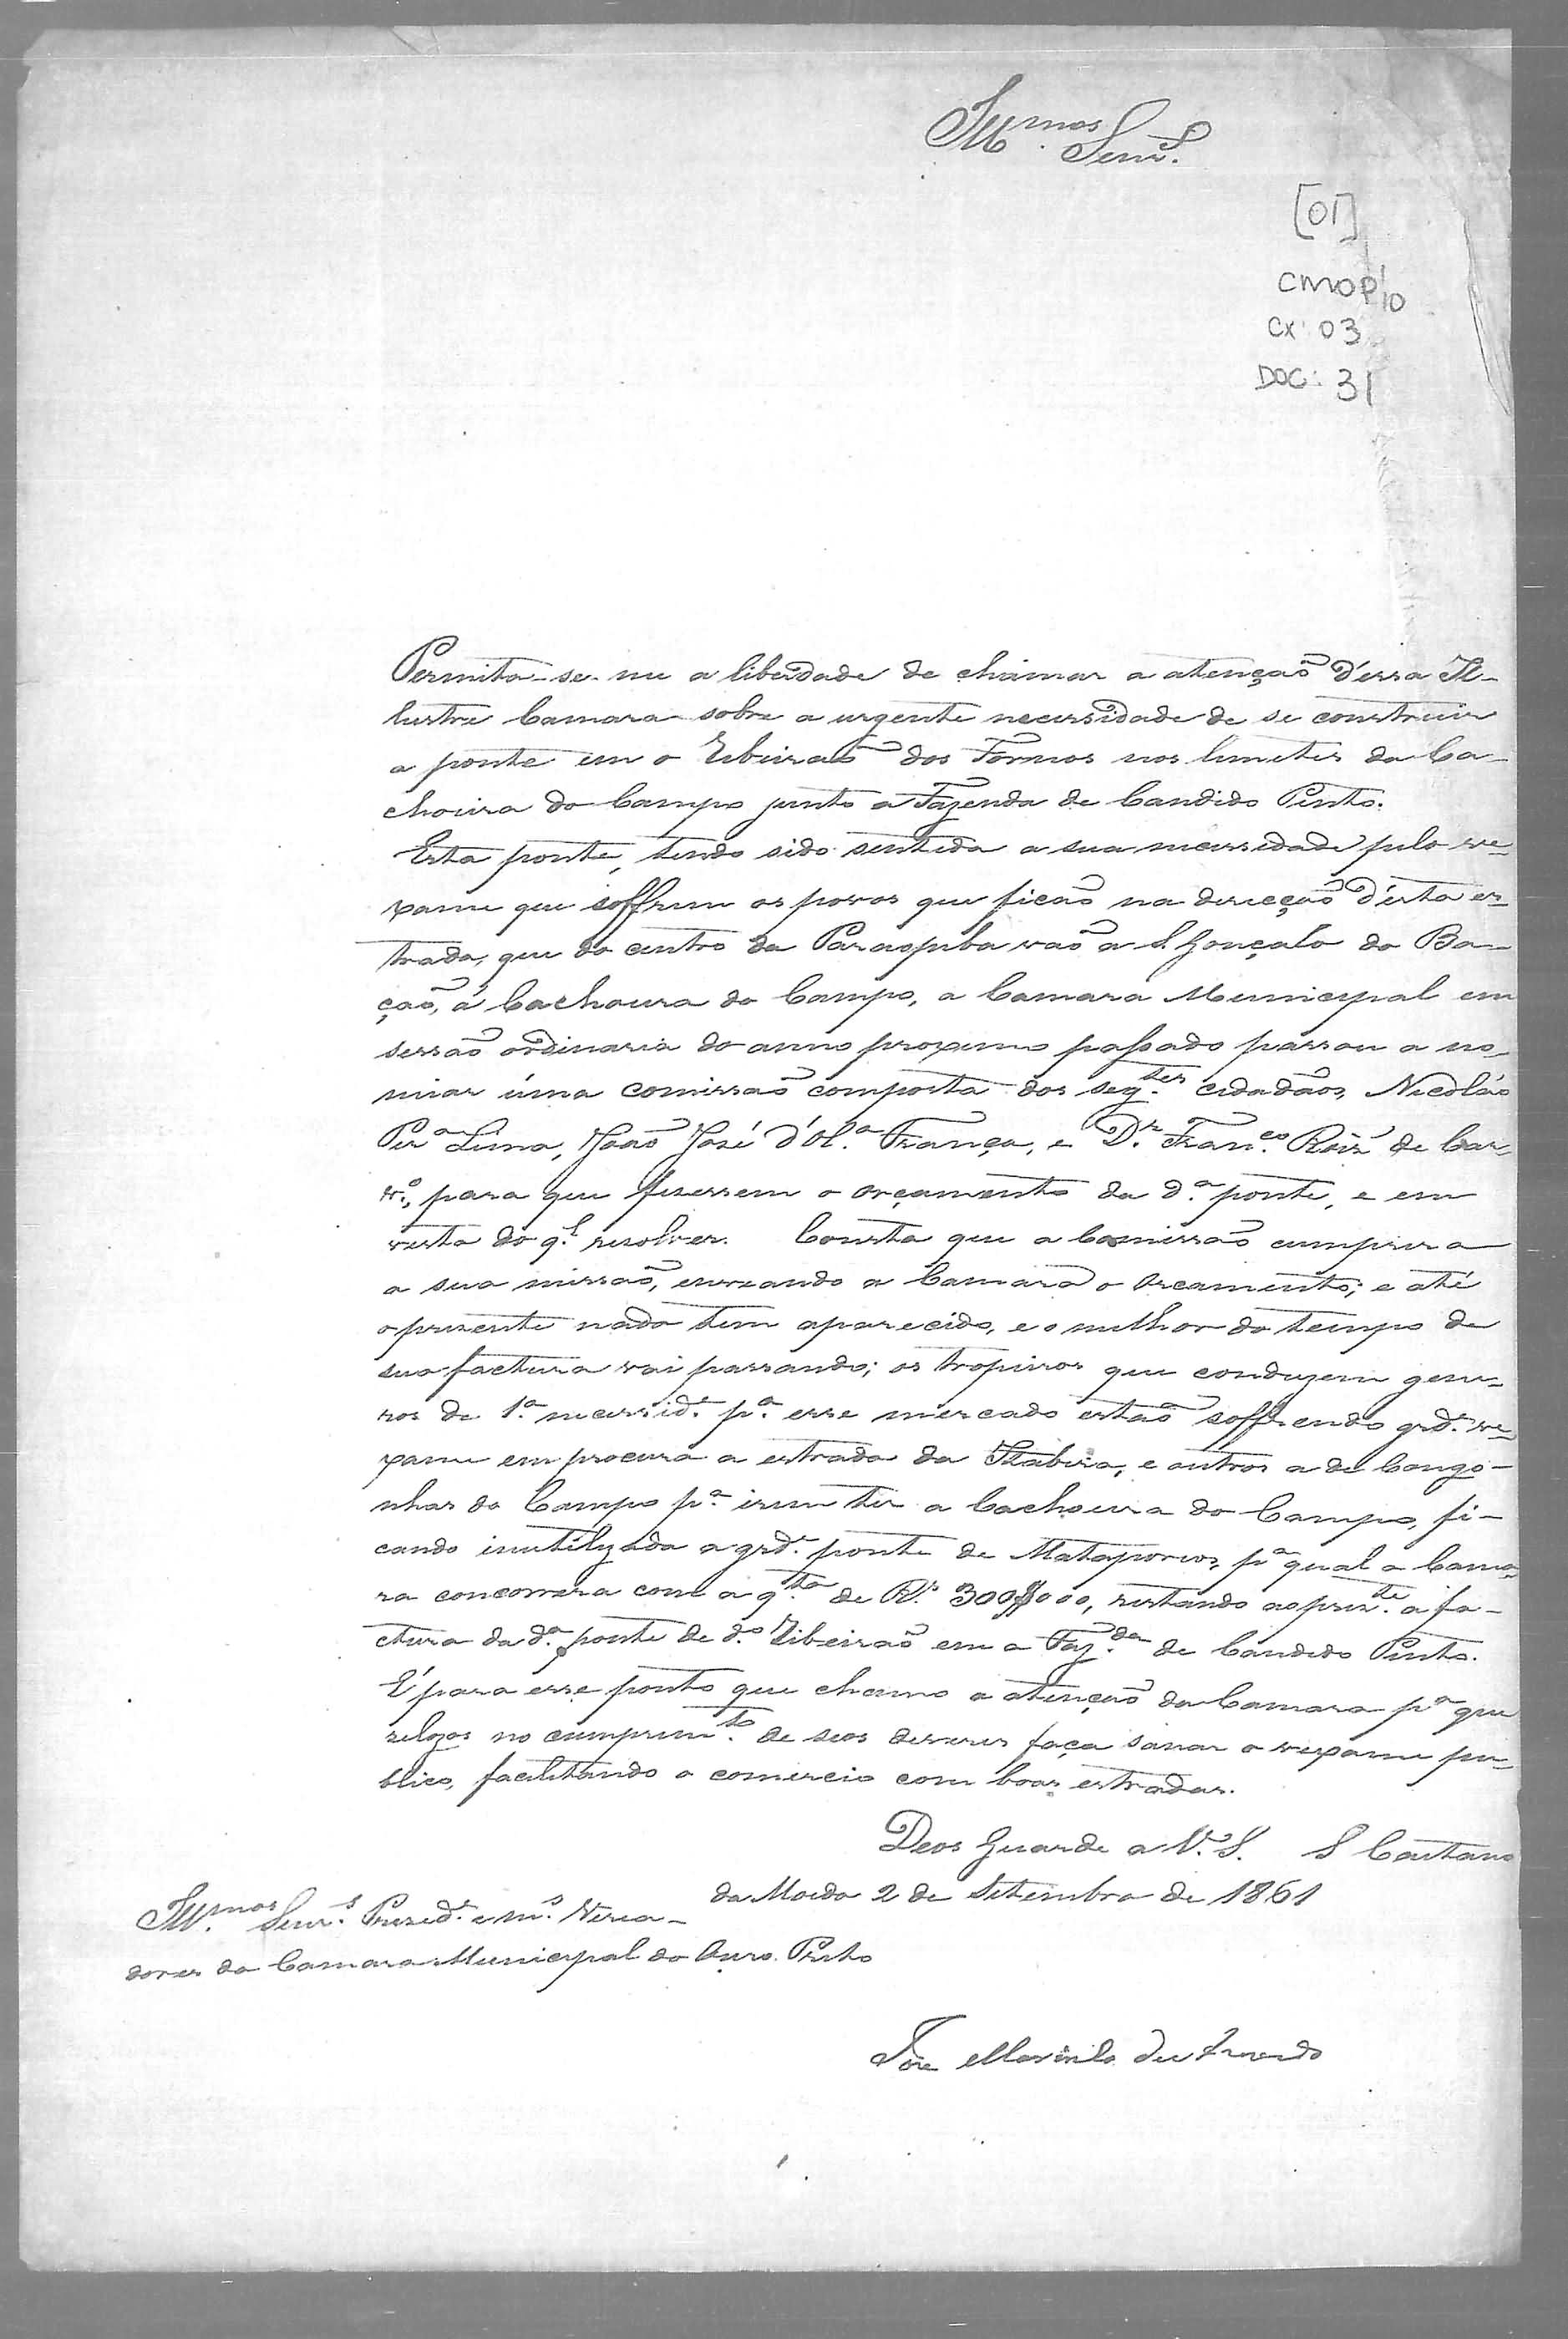 Illmos. Senrs.
[01]
CMOP 10
CX: 03
DOC: 31
Permita-se-me a liberdade de chamar a atenção d'essa Il-
lustre Camara sobre a urgente necessidade de se construir
a ponte em o Ribeirão dos Fornos nos limites da Ca-
choeira do Campo junto a Fazenda de Candido Pinto.
Esta ponte, tendo sido sentida a sua necessidade pelo ve-
xame que soffrem os povos que ficão na direcção d'esta es-
trada, que do centro da Paraopeba vão a S. Gonçalo do Ba-
ção, á Cachoeira do Campo, a Camara Municipal em
sessão ordinaria do anno proximo passado passou a no-
miar úma comissão composta dos segtes. cidadãos, Nicoláo
Pera Lima, João José d'Ola. França, e Dr. Franco. Roiz de Car-
vo., para que fisessem o orçamento da da. ponte, e em
vista do ql. resolver. Consta que a Comissão cumprira
a sua missão, enviando a Camara o orcamento; e até
o presente nada tem aparecido, e o milhor do tempo de
sua factura vai passando; os tropeiros que conduzem gene-
ros de 1.a necesside. pa. esse mercado estão soffrendo grde. ve-
xame em procura a estrada da Itabira, e outros a de Congo-
nhas do Campo pa. irem ter a Cachoeira do Campo, fi-
cando inutilizada a grde. ponte de Mataporcos, pa qual a Cama-
ra concorrera com a qta. de Rs. 300$000, restando ao preste. a fa-
ctura da da. ponte de do. Ribeirão em a Fazda. de Candido Pinto.
É para esse ponto que chamo a atenção da Camara pa que
zelozos no cumprimto. de seos deveres faça sanar o vexame pu-
blico, facilitando o comercio com boas estradas.
Deos Guarde a V. S. S Caetano
da Moeda 2 de Setembro de 1861
Illmos. Senrs. Preside. e ms. Verea-
dores da Camara Municipal do Ouro Preto
José de Azevedo